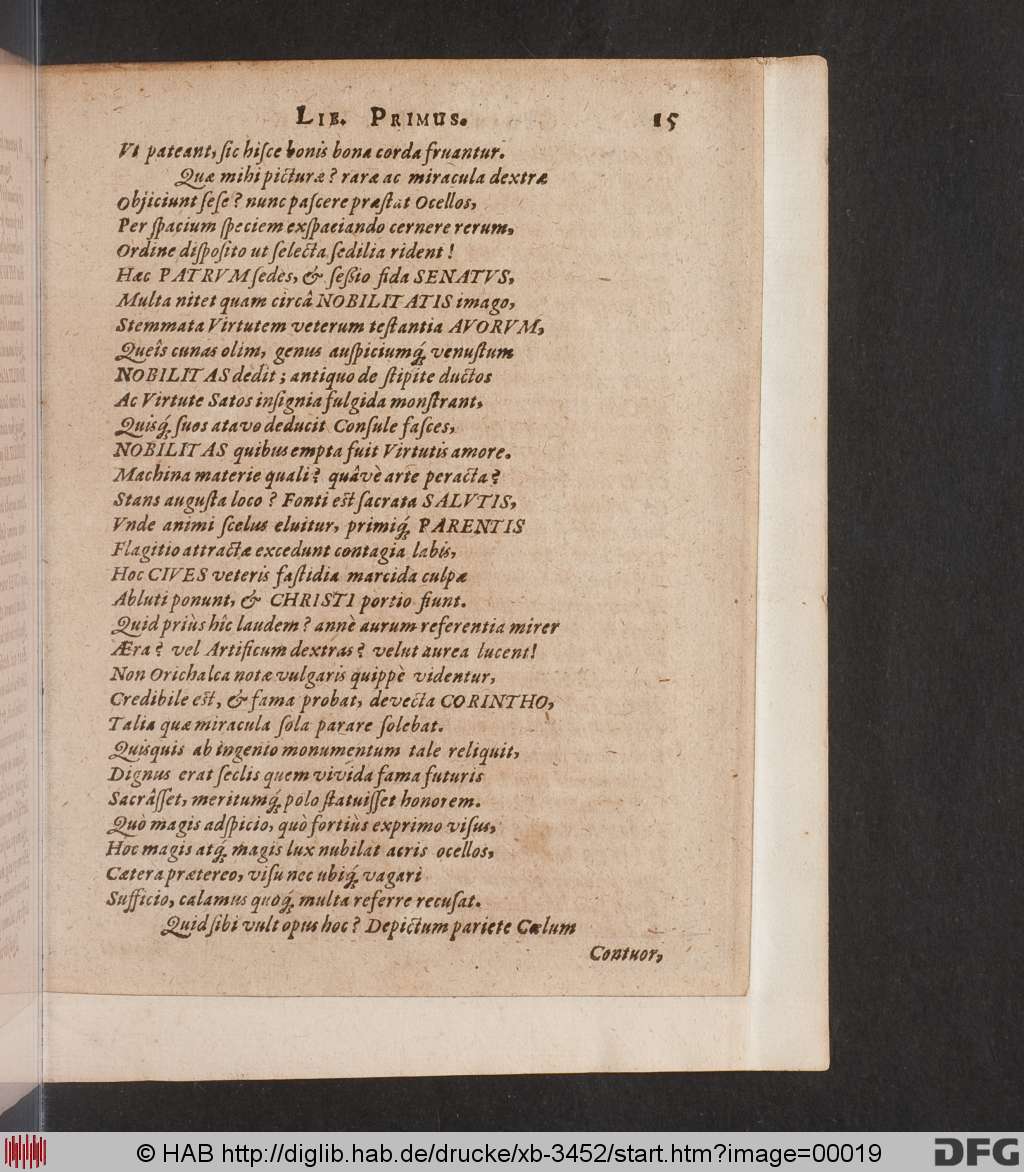 LIB. PRIMUS. 15
Vt pateant, ſic hiſce bonis bona corda fruantur.
Quæ mihi picturæ? raræ ac miracula dextræ
Objiciunt ſeſe? nunc paſcere præſtat Ocellos,
Per ſpacium ſpeciem exſpaciando cernere rerum,
Ordine diſpoſito ut ſelecta ſedilia rident!
Hæc PATRVM ſedes, & ſeßio fida SENATVS,
Multa nitet quam circâ NOBILITATIS imago,
Stemmata Virtutem veterum teſtantia AVORVM,
Queîs cunas olim, genus auſpiciumq́; venuſtum
NOBILITAS dedit; antiquo de ſtipite ductos
Ac Virtute Satos inſignia fulgida monſtrant,
Quisq́; ſuos atavo deducit Conſule faſces,
NOBILITAS quibus empta fuit Virtutis amore.
Machina materie quali? quâvè arte peracta?
Stans auguſta loco? Fonti eſt ſacrata SALVTIS,
Vnde animi ſcelus eluitur, primiq́; PARENTIS
Flagitio attractæ excedunt contagia labis,
Hoc CIVES veteris faſtidia marcida culpæ
Abluti ponunt, & CHRISTI portio fiunt.
Quid priùs hîc laudem? annè aurum referentia mirer
Æra? vel Artificum dextras? velut aurea lucent!
Non Orichalca notæ vulgaris quippè videntur,
Credibile eſt, & fama probat, devecta CORINTHO,
Talia quæ miracula ſola parare ſolebat.
Quisquis ab ingenio monumentum tale reliquit,
Dignus erat ſeclis quem vivida fama futuris
Sacrâſſet, meritumq́; polo ſtatuiſſet honorem.
Quò magis adſpicio, quò fortiùs exprimo viſus,
Hoc magis atq́; magis lux nubilat acris ocellos,
Cætera prætereo, viſu nec ubiq́; vagari
Sufficio, calamus quoq́; multa referre recuſat.
Quid ſibi vult opus hoc? Depictum pariete Cœlum
Contuor,
© HAB http://diglib.hab.de/drucke/xb-3452/start.htm?image=00019
DFG